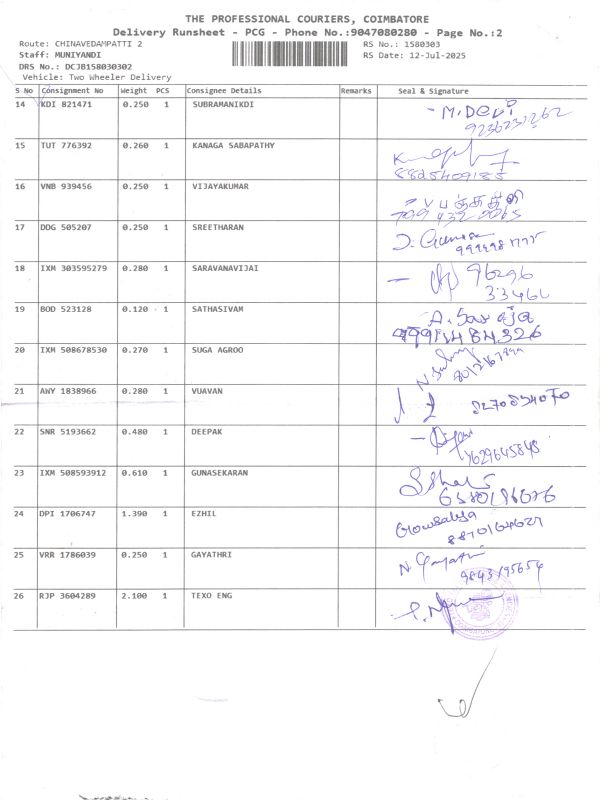 THE PROFESSIONAL COURIERS, COIMBATORE
Delivery Runsheet - PCG - Phone No.:9047080280 - Page No.:2
Route: CHINAVEDAMPATTI 2 RS No.: 1580303
Staff: MUNIYANDI RS Date: 12-Jul-2025
DRS No.: DCJB158030302
Vehicle: Two Wheeler Delivery
S No Consignment No Weight PCS Consignee Details Remarks Seal & Signature
14 KDI 821471 0.250 1 SUBRAMANIKDI - M.Devi
15 TUT 776392 0.260 1 KANAGA SABAPATHY
8825409185
16 VNB 939456 0.250 1 VIJAYAKUMAR
17 DDG 505207 0.250 1 SREETHARAN
18 IXM 303595279 0.280 1 SARAVANAVIJAI - 96296
33466
19 BOD 523128 0.120 1 SATHASIVAM
20 IXM 508678530 0.270 1 SUGA AGROO
21 AWY 1838966 0.280 1 VUAVAN
22 SNR 5193662 0.480 1 DEEPAK
7629645848
23 IXM 508593912 0.610 1 GUNASEKARAN
24 DPI 1706747 1.390 1 EZHIL Gowsalya
25 VRR 1786039 0.250 1 GAYATHRI N Gayathri
9843195654
26 RJP 3604289 2.100 1 TEXO ENG